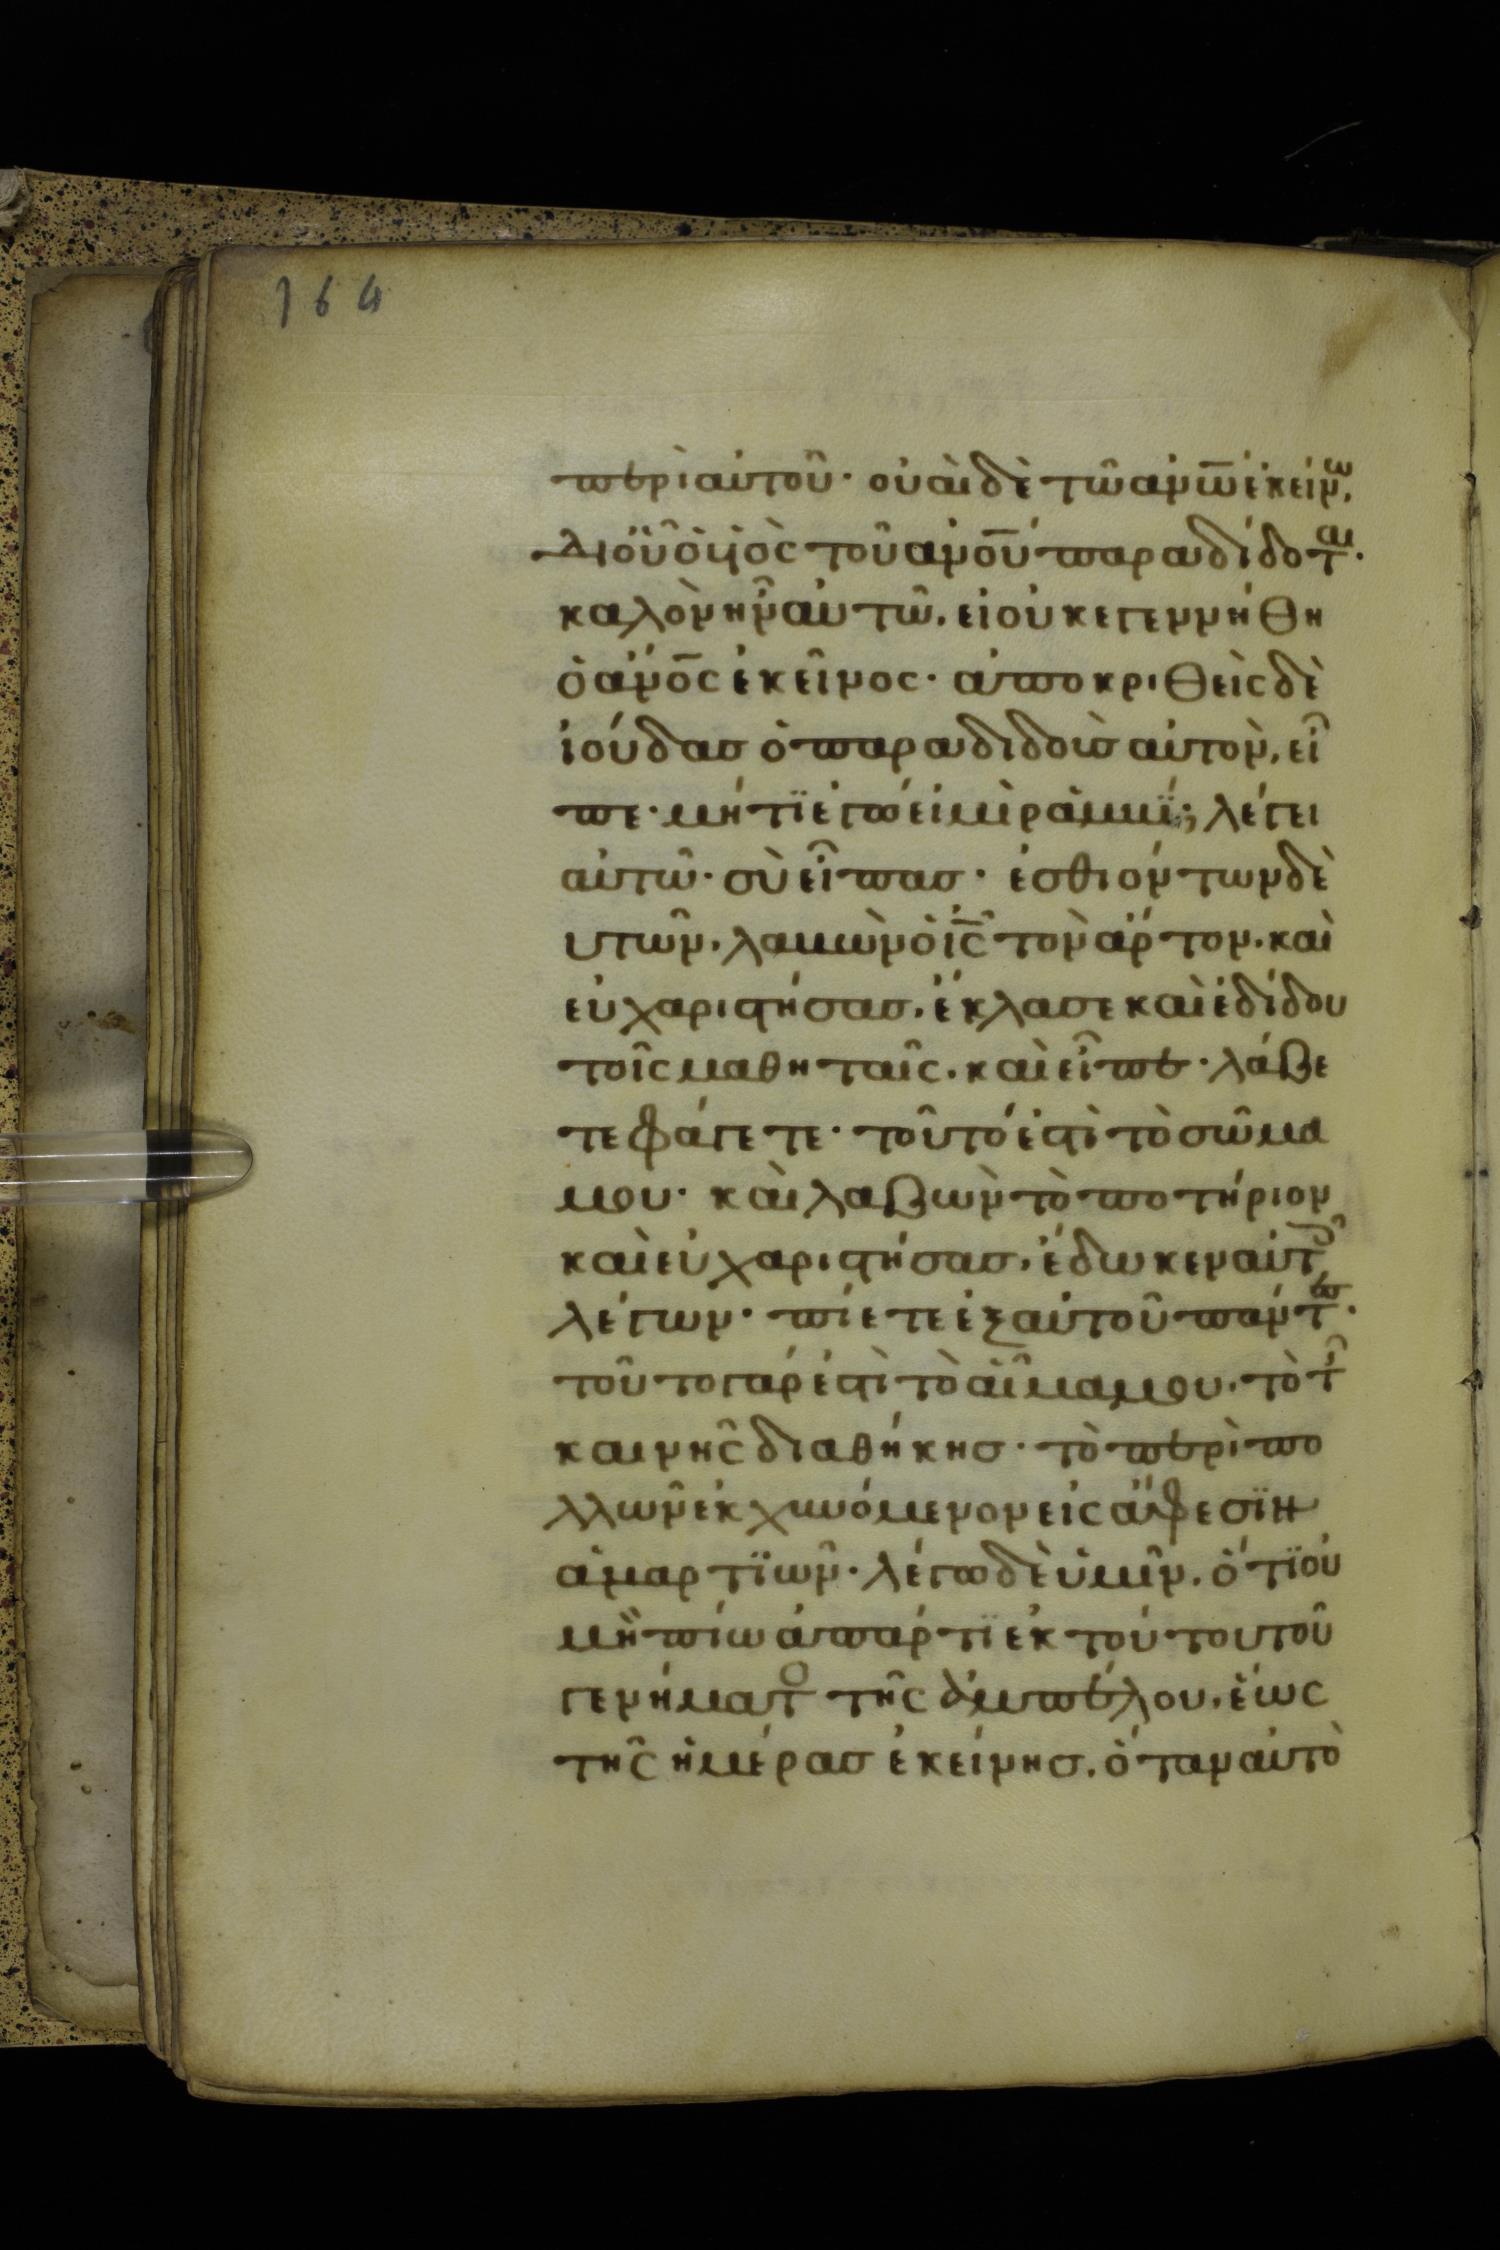 164
περὶ αὐτοῦ· οὐαὶ δὲ τῶ ἀν̅ω̅ ἐκείνω,
δι οὗ ὁ υἱὸς τοῦ ἀν̅ο̅υ̅ παραδίδοται·
καλὸν ἦν αὐτῶ, εἰ οὐκ ἐγεννήθη
ὁ ἄν̅ο̅ς̅ ἐκεῖνος· ἀποκριθεὶς δὲ
ἰούδας ὁ παραδιδοὺς αὐτὸν, εἶ
πε· μήτϊ ἐγώ εἰμὶ ραββΐ; λέγει
αὐτῶ· σὺ εἶπας· ἐσθιόντων δὲ
υτῶν, λαβὼν ὁ ι̅ς̅ τὸν ἄρτον, καὶ
εὐχαριστήσας, ἔκλασε καὶ ἐδίδου
τοῖς μαθηταῖς, καὶ εἶπε· λάβε
τε φάγετε· τοῦτό ἐστὶ τὸ σῶμα
μου· καὶ λαβὼν τὸ ποτήριον
καὶ εὐχαριστήσας, ἔδωκεν αὐτοῖς
λέγων· πίετε ἐξ αὐτοῦ πάντες·
τοῦτο γάρ ἐστὶ τὸ αἷμα μου, τὸ τῆς
καινῆς διαθήκης· τὸ περὶ πο
λλῶν ἐκχυνόμενον εἰς ἄφεσϊν
ἁμαρτϊῶν· λέγω δὲ ὑμῖν, ὅτϊ οὐ
μὴ πίω ἀπάρτϊ ἐκ τούτου τοῦ
γενήματος τῆς ἀμπέλου, ἕως
τῆς ἡμέρας ἐκείνης, ὅταν αὐτὸ